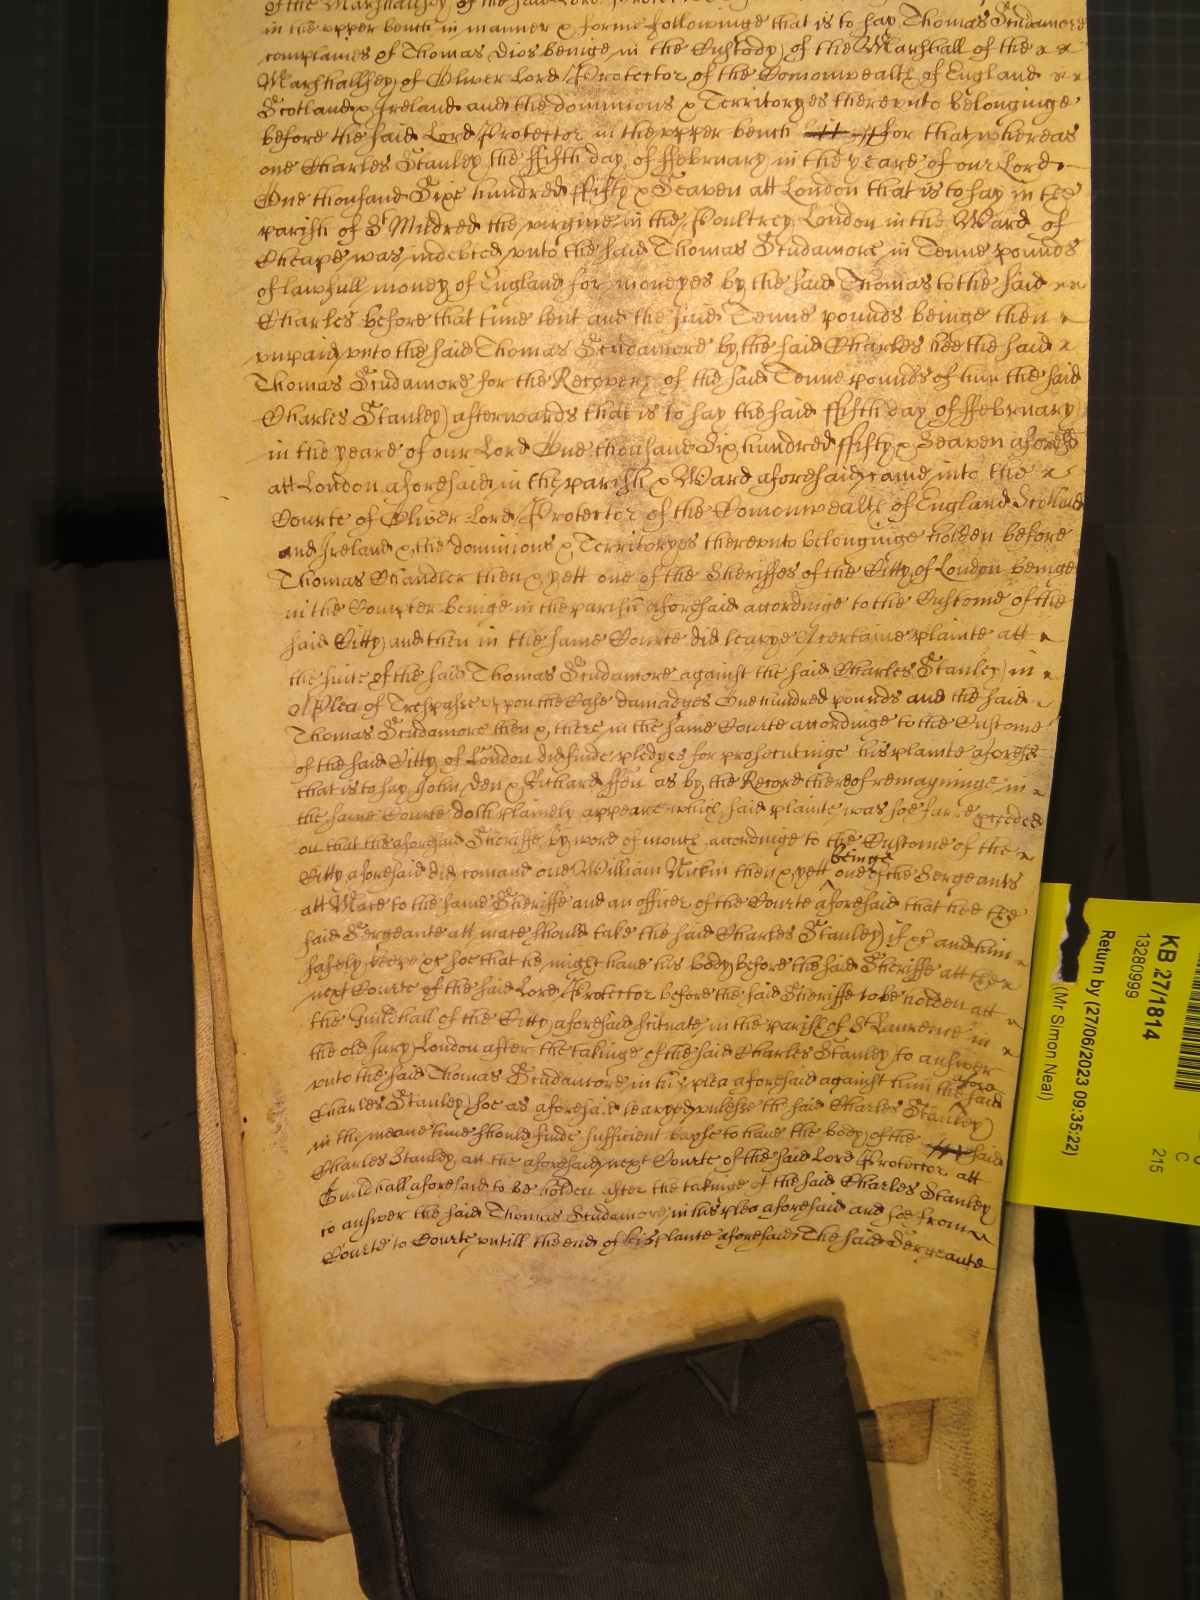 of the Marshallsey of the said Lord Protector
in the upper bench in manner & forme followinge that is to say Thomas Scudamore
complaines of Thomas Dios beinge in the Custody of the Marshall of the
Marshallsey of Oliver Lord Protector of the Comonwealth of England
Scotland & Ireland and the dominions & Territoryes thereunto belonginge
before the said Lord Protector in the upper bench for that whereas
one Charles Stanley the ffifth day of ffebruary in the yeare of our Lord
One thousand Sixe hundred ffifty & Seaven att London that is to say in the
parish of St Mildred the virgine in the Poultrey London in the Ward of
Cheape was indebted unto the said Thomas Scudamore in Tenne pounds
of lawfull money of England for moneyes by the said Thomas to the said
Charles before that time lent and the said Tenne pounds beinge then
unpaid unto the said Thomas Scudamore by the said Charles hee the said
Thomas Scudamore for the Recovery of the said Tenne pounds of him the said
Charles Stanley afterwards that is to say the said ffifth day of ffebruary
in the yeare of our Lord One thousand Six hundred ffifty & Seaven aforesd
att London aforesaid in the parish & Ward aforesaid came into the
Courte of Oliver Lord Protector of the Comonwealth of England Scotland
and Ireland & the dominions & Territoryes thereunto belonginge holden before
Thomas Chandler then & yett one of the Sheriffes of the Citty of London beinge
in the Compter beinge in the parish aforesaid accordinge to the Custome of the
said Citty and then in the same Courte did leavye A certaine plainte att
the suite of the said Thomas Scudamore against the said Charles Stanley in
A Plea of Trespasse uppon the Case damadges One hundred pounds and the said
Thomas Scudamore then & there in the same Courte accordinge to the Custome
of the said Citty of London did finde pledges for prosecutinge his plainte aforesd
that is to say John Den & Richard ffen as by the Record thereof remayninge in
the same Courte doth plainely appeare which said plainte was soe farre pceeded
on that the aforesaid Sheriffe by word of mouth accordinge to the Custome of the
Citty aforesaid did comand one William Nickin then & yett beinge one of the Sergeants
att Mace to the same Sheriffe and an officer of the Courte aforesaid that hee the
said Sergeante att mace should take the said Charles Stanley if &c and him
safely keepe &c soe that he might have his body before the said Sheriffe att the
next Courte of the said Lord Protector before the said Sheriffe to be holden att
the Guildhall of the Citty aforesaid scituate in the parish of St Laurence in
the old Jury London after the takinge of the said Charles Stanley to answer
unto the said Thomas Scudamore in his plea aforesaid against him the afore said
Charles Stanley soe as aforesaid leavyed unlesse the said Charles Stanley
in the meane time should finde sufficient bayle to have the body of the said
Charles Stanley att the aforesaid next Courte of the said Lord Protector att
Guildhall aforesaid to be holden after the takinge of the said Charles Stanley
to answer the said Thomas Scudamore in his plea aforesaid and soe from
Courte to Courte untill the end of his plainte aforesaid The said Sergeante
KB 27/1814
13280999
Return by (27/06/2023 09:35:22)
(Mr Simon Neal)
C
215